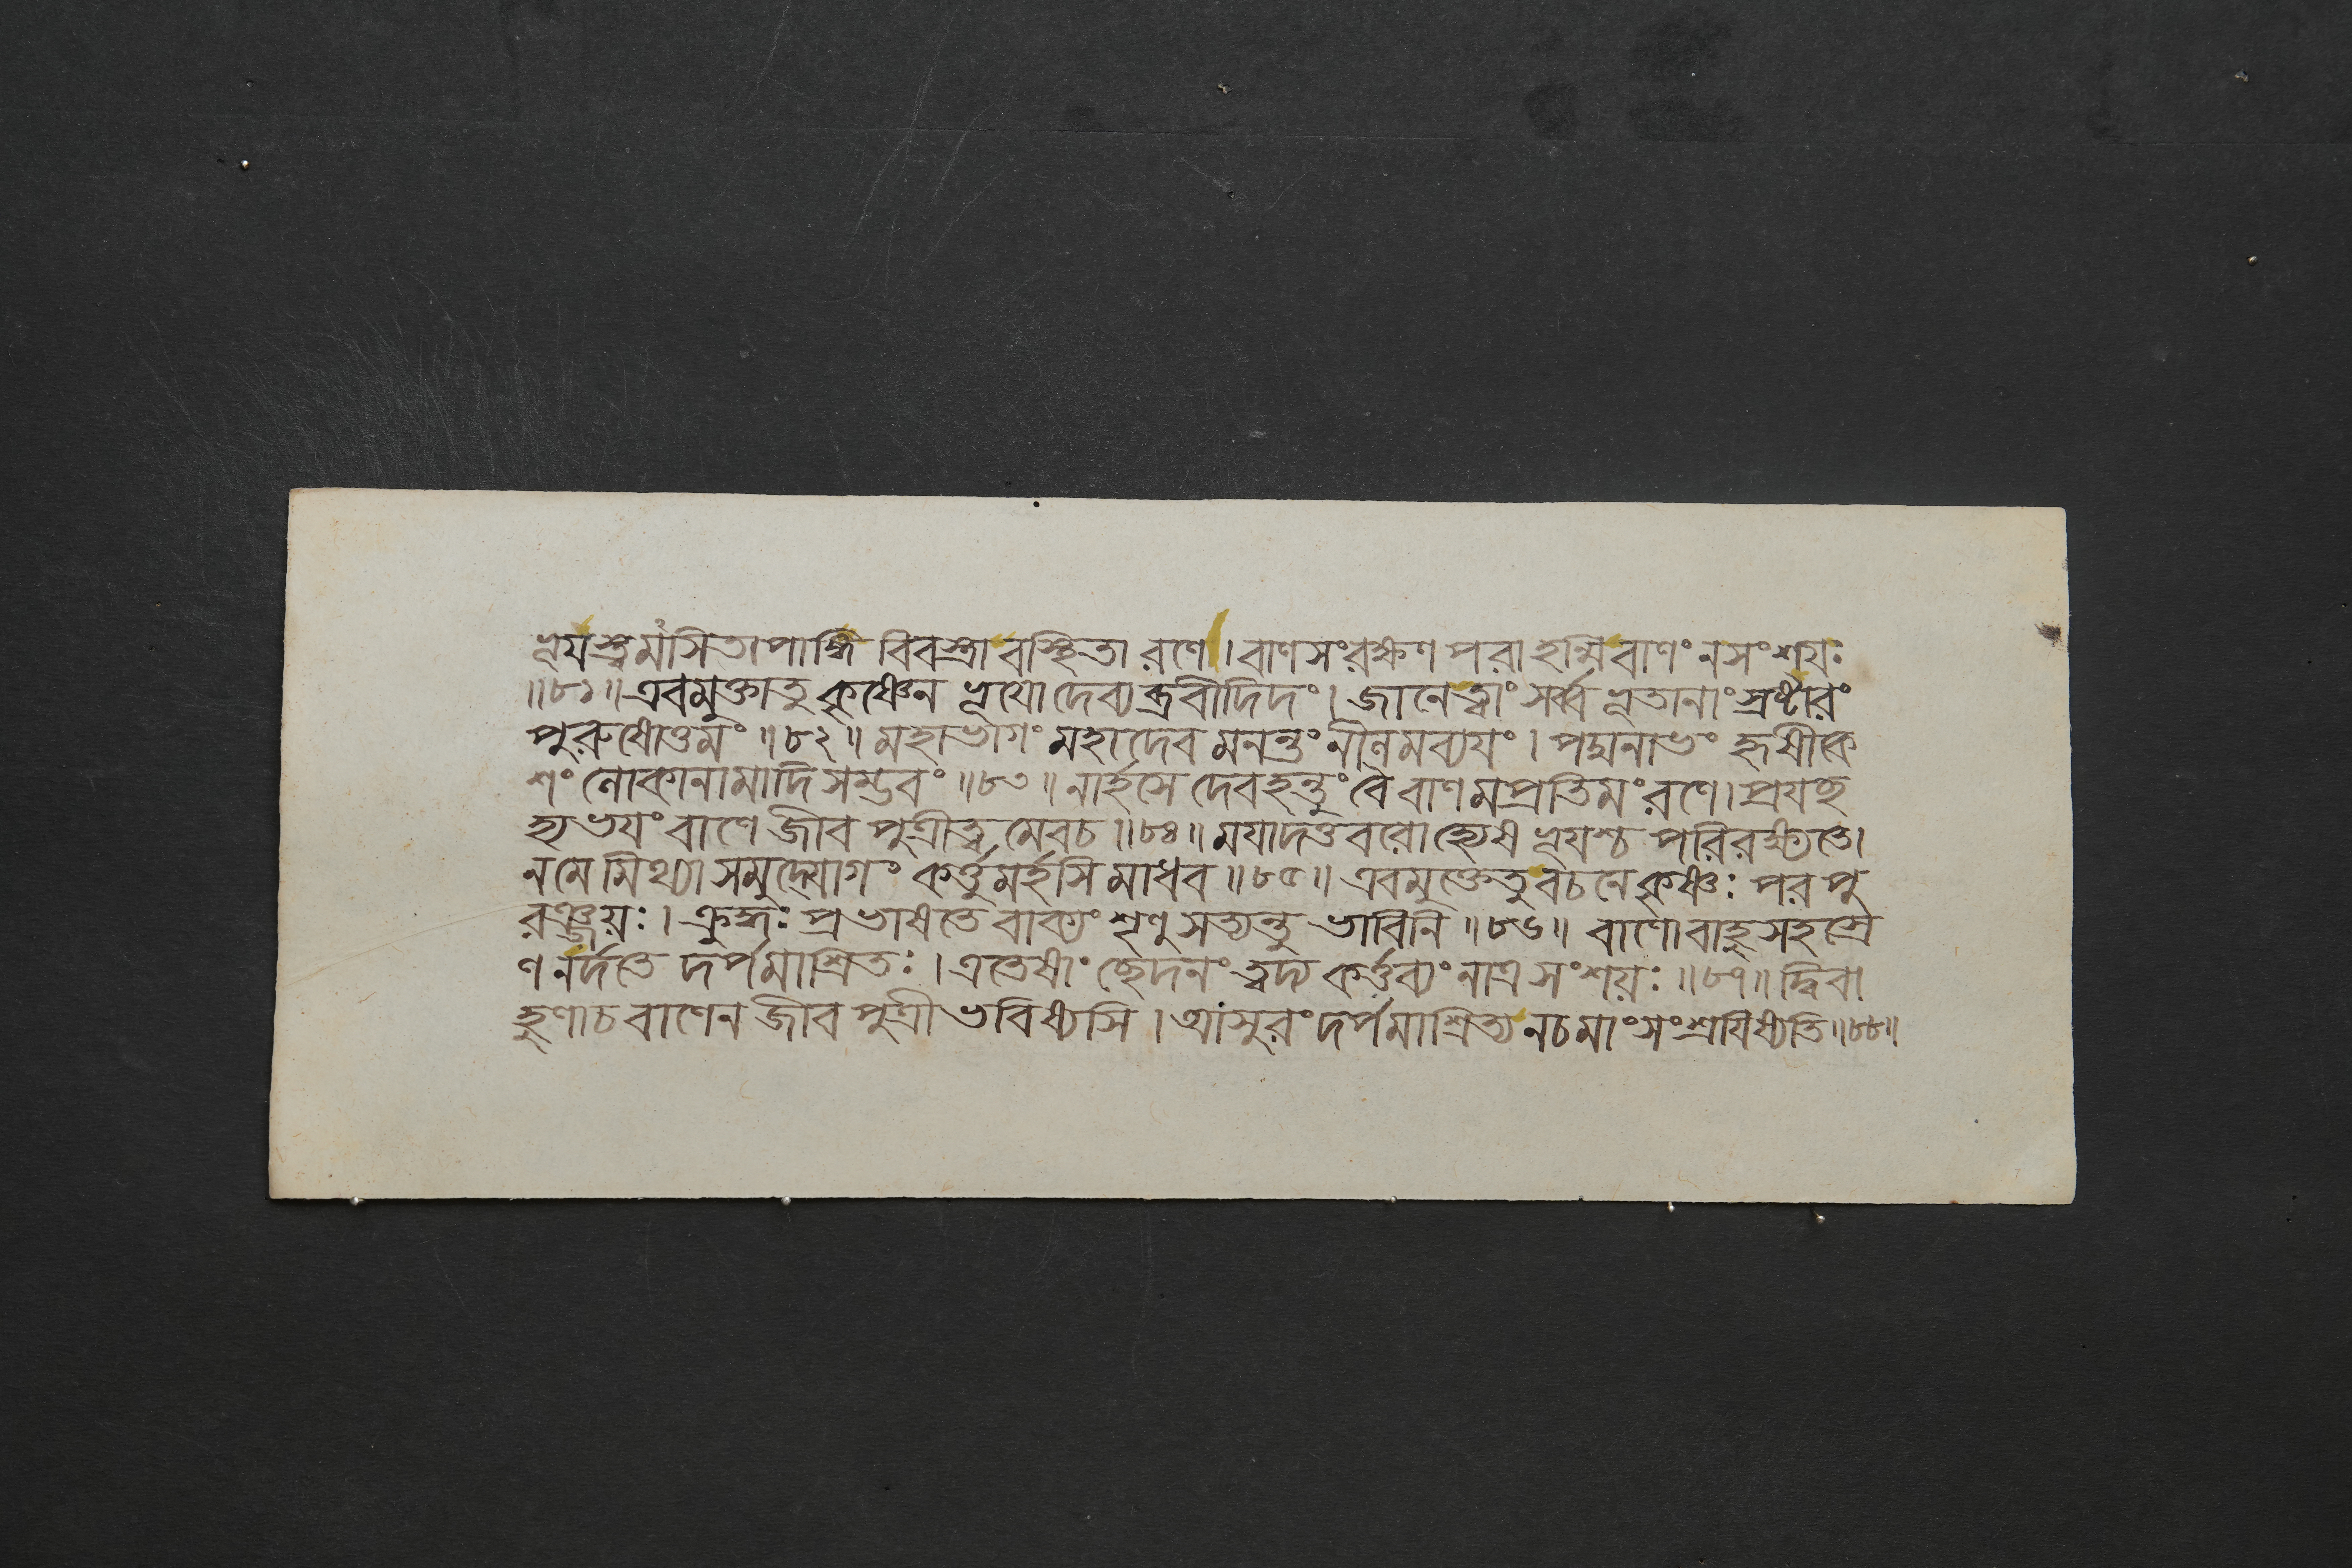 ভূযস্ত্বমসিতাপাঙ্গি বিবস্ত্রাবস্থিতা রণে। বাণসংরক্ষণপরা হন্মি বাণং ন সংশযঃ
॥৮১॥ এবমুক্তা তু কৃষ্ণেন ভূযো দেব্যব্রবীদিদং। জানে ত্বাং সর্ব্বভূতানাং স্রষ্টারং
পুরুষোত্তমং॥৮২॥ মহাভাগং মহাদেবমনন্তং নীলমব্যযং। পদ্মনাভং হৃষীকে
শং লোকানামাদিসম্ভবং॥৮৩॥ নার্হসে দেব হন্তুং বৈ বাণমপ্রতিমং রণে। প্রযচ্ছ
হ্যভযং বাণে জীবপুত্রীত্বমেব চ॥৮৪॥ মযা দত্তবরো হ্যেষ ভূযশ্চ পরিরক্ষ্যতে।
ন মে মিথ্যা সমুদ্যোগং কর্ত্তুমর্হসি মাধব॥৮৫॥ এবমুক্তে তু বচনে কৃষ্ণঃ পরপু
রঞ্জযঃ। ক্রুদ্ধঃ প্রভাষতে বাক্যং শৃণু সত্যন্তু ভাবিনি॥৮৬॥ বাণো বাহুসহস্রে
ণ নর্দতে দর্পমাশ্রিতঃ। এতেষাং ছেদনং ত্বদ্য কর্ত্তব্যং নাত্র সংশযঃ॥৮৭॥ দ্বিবা
হুণা চ বাণেন জীবপুত্রী ভবিষ্যসি। আসুরং দর্পমাশ্রিত্য ন চ মাং সংশ্রযিষ্যতি॥৮৮॥